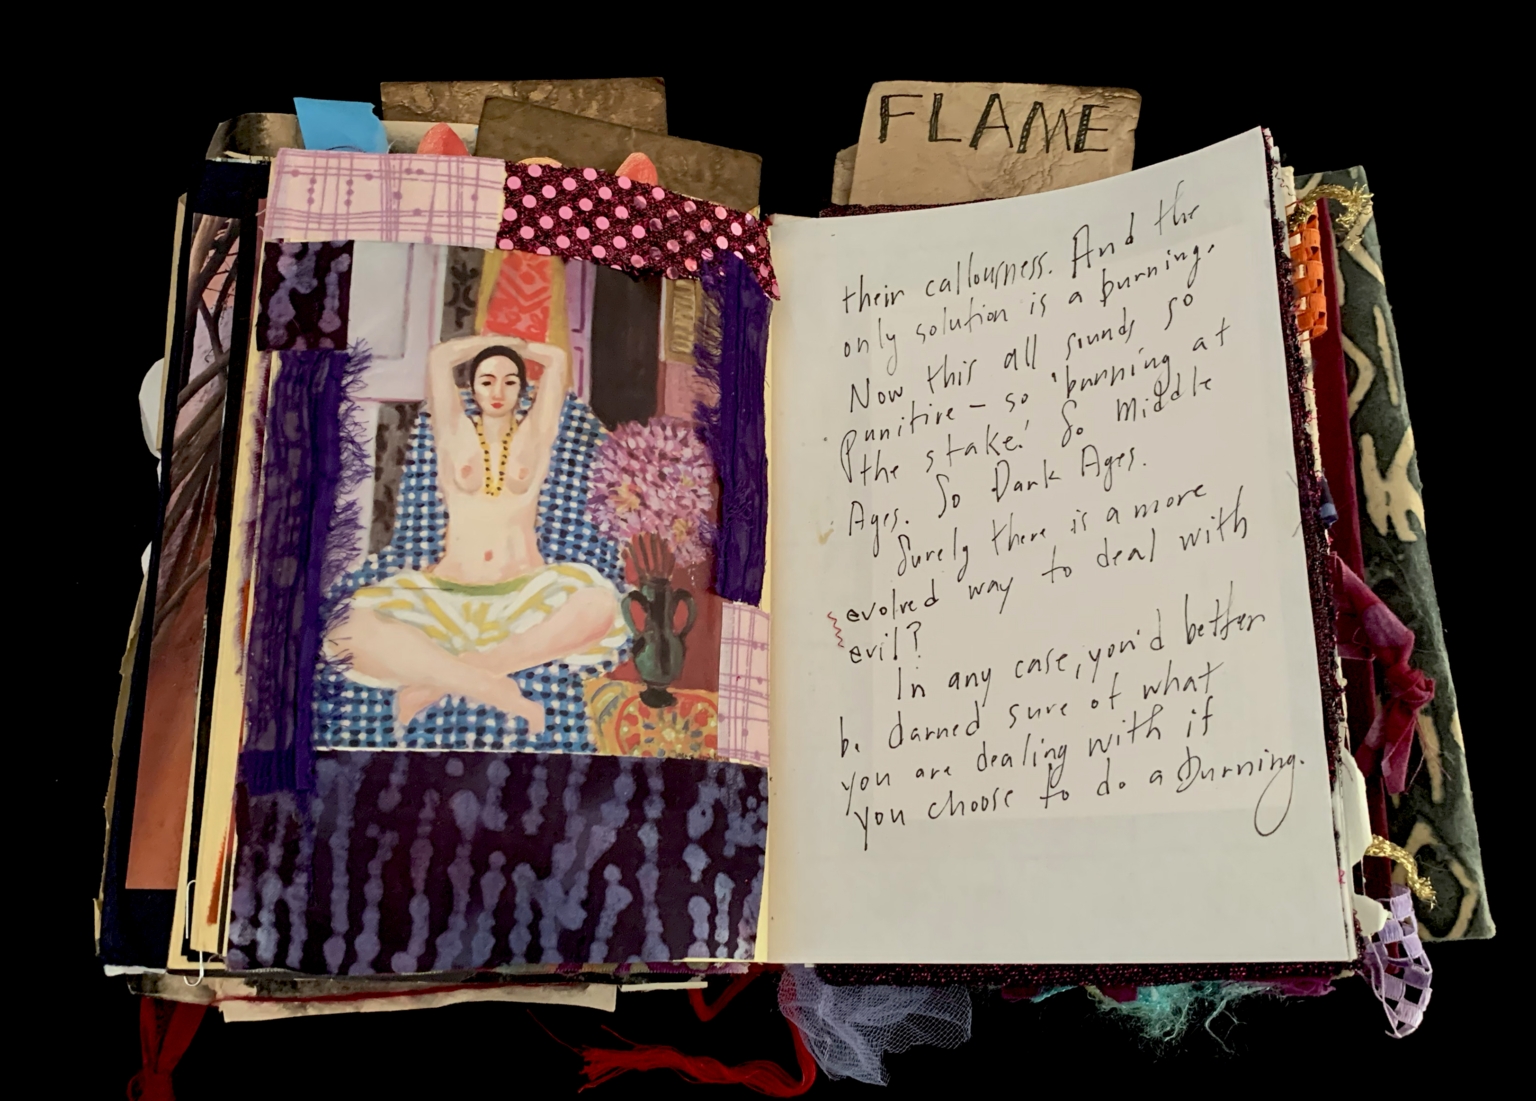 FLAME
their callousness. And the
only solution is a burning.
Now this all sounds so
Punitive – so 'burning at
the stake.' So Middle
Ages. So Dark Ages.
Surely there is a more
evolved way to deal with
evil?
In any case, you'd better
be darned sure of what
you are dealing with if
you choose to do a burning.